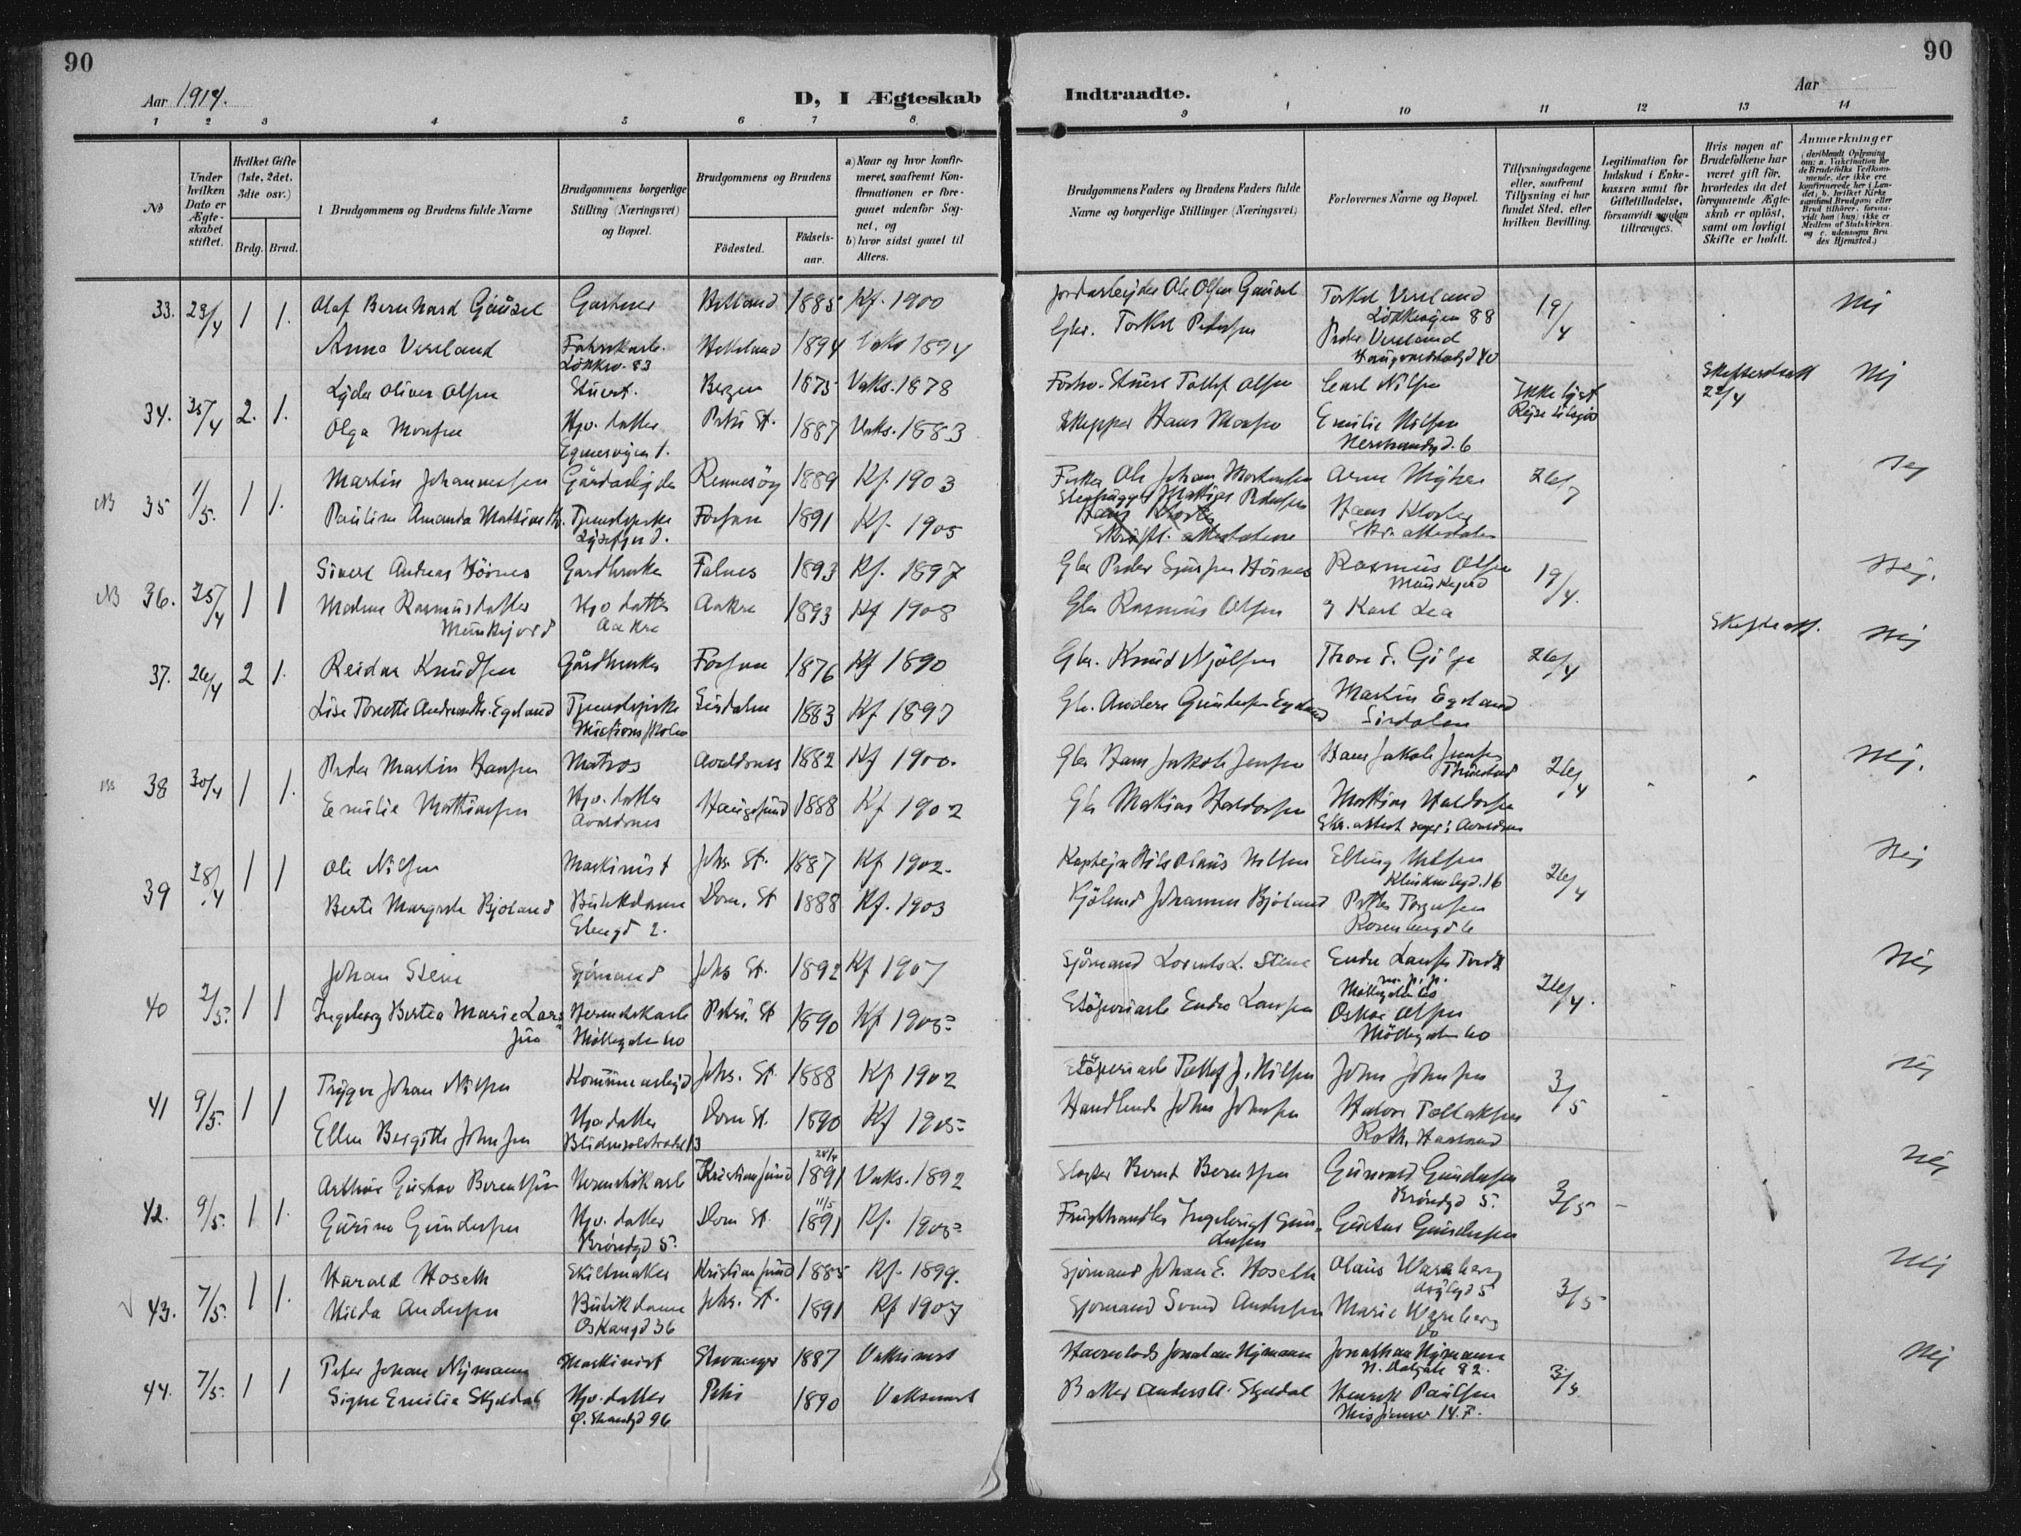 90
Aar 1914.
D, I Ægteskab
1 2 3 4 5 6 7 8
No
Under hvilken Dato er Ægteskabet stiftet.
Hvilket Gifte (1ste, 2det, 3dte osv.)
Brdg. Brud.
Brudgommens og Brudens fulde Navne
Brudgommens borgerlige Stilling (Næringsvei) og Bopæl.
Brudgommens og Brudens
Fødested.
Fødsels-aar.
a) Naar og hvor konfirmeret, saafremt Konfirmationen er foregaaet udenfor Sognet, og
b) hvor sidst gaaet til Alters.
33. 23/4 1 1. Olaf Bernhard Gausel Gartner Hetland 1885 Kf. 1900
Anna Vereland Fabrikarb. Hetland 1894 Vaks 1894
Løkkev. 83
34. 25/4 2. 1. Lyder Oliver Olsen Stuert. Bergen 1875 Vaks. 1878
Olga Monsen Hjv. datter Petri St. 1887 Vaks. 1883
NB 35 1/5. 1 1. Martin Johannessen Gårdarbejder Rennesøy 1889 Kf. 1903
Pauline Amanda Tjenestepike Forsan 1891 Kf. 1905
Lysefjord.
NB 36. 25/4 1 1 Sivert Andreas Gardbruker Falnes 1893 Kf. 1897
Malene Rasmusdatter Hjv datter Aakra 1893 Kf 1908
Munkejord Aakra
37. 26/4 2 1. Reidar Knudsen Gårdbruker Forsan 1876 Kf 1890
Lise Tonette Egeland Tjenestepike Sirdalen 1883 Kf 1897
Missionsskolen
38 30/4 1 1. Peder Martin Hansen Matros Avaldsnes 1882 Kf 1900.
Emilie Mathiassen Hjv. datter Haugesund 1888 Kf 1902
Avaldsnes
39 28/4 1 1 Ole Nilsen Maskinist Johs. St. 1887 Kf 1902.
Berte Margrete Bjoland Butikdame Dom. St 1888 Kf. 1903
Stengd 2.
40 2/5. 1 1 Johan Steen Sjømand Johs St. 1892 Kf 1907
Ingeborg Bertea Marie Larsen Hermetikarb Petri. St 1890 Kf 1905
Møllegaten 60
41 9/5. 1 1 Trygve Johan Nilsen Kommunearbejd Johs. St. 1888 Kf 1902
Ellen Bergitte Johnsen Hjv datter Dom St. 1890 Kf 1905
42. 9/5. 1 1. Arthur Gustav Berentsen Hermetikarb Kristiansund 28/4 1891 Vaks. 1892
Gurine Gundersen Hjv. datter Dom St. 11/5 1891 Kf. 1905
Brøndgd 5.
43. 7/5. 1 1. Harald Hoseth Skiltmaker Kristiansund 1885 Kf. 1899.
Hilda Andersen Butikdame Johs. St. 1891 Kf 1907
Oskarsgd 36
44. 7/5. 1 1 Peter Johan Nymann Maskinist Stavanger 1887 Vaksinert
Signe Emilie Skjeldal Hjv. datter Petri 1890 Vaksinert
Ø. Strandgd 96
90
Aar
Indtraadte.
9 10 11 12 13 14
Brudgommens Faders og Brudens Faders fulde Navne og borgerlige Stillinger (Næringsvei)
Forlovernes Navne og Bopæl.
Tillysningsdagene eller, saafremt Tillysning ei har fundet Sted, efter hvilken Bevilling.
Legitimation for Indskud i Enkekassen samt for Giftetilladelse, forsaavidt saadan tiltrænges.
Hvis nogen af Brudefolkene har været gift før, hvorledes da det foregaaende Ægteskab er opløst, samt om lovligt Skifte er holdt.
Anmerkninger
(deriblandt Oplysning om: a. Vakcination for de Brudefolks Vedkommende, der ikke ere konfirmerede her i Landet, b. hvilket Kirkesamfund Brudgom eller Brud tilhører, forsaavidt han (hun) ikke er Medlem af Statskirken, og c. udensogns Brudes Hjemsted.)
Jordarbejder Ole Olsen Gausel Torkel Vereland 19/4 Nej
Løkkevejen 88
Gbr. Torkel Pedersen Peder Vereland
Forhv. Stuert Tollef Olsen Carl Nilsen Ikke lyst Skifteattest 22/4 Nej
Skipper Hans Monsen Emilie Nilsen
Fisker Ole Johan Mortensen Nej
Mathias Pedersen Hans Kloster
Gbr Peder Sjursen Rasmus Olsen 19/4. Nej.
Munkejord
Gbr Rasmus Olsen og Karl Lea
Gbr. Knud Njålsen 26/4 Skifteatt. Nej
Gbr. Anders Gundersen Egeland Martin Egeland
Sirdalen
Gbr Hans Jakob Jensen Hans Jakob Jensen 26/4 Nej.
Gbr Mathias Haldorsen Mathias Haldorsen
Kaptejn Nils Nilsen Elling Nilsen 26/4 Nej
Johannes Bjoland Petter Torgersen
Rosenbergd 6
Sjømand Lorents L. Steen Endre Larsen 26/4. Nej
Møllegaten 60
Støperiarb Endre Larsen Oskar Olsen
Møllegaten 60
Støperiarb Tollef J. Nilsen John Johnsen 3/5 Nej
Handlende John Johnsen Halvor Tollaksen
Slagter Bernt Berntsen Gunvald Gundersen 3/5 Nej
Brøndgd 5.
Frugthandler Ingebrigt Gundersen Gustav Gundersen
Sjømand Johan E. Hoseth Olaus Wareberg 3/5 Nej
Sjømand Svend Andersen Marie Wareberg
do
Havnelods Jonatan Nymann Jonathan Nymann 3/5 Nej
Baker Anders A. Skjeldal Henrik Paulsen